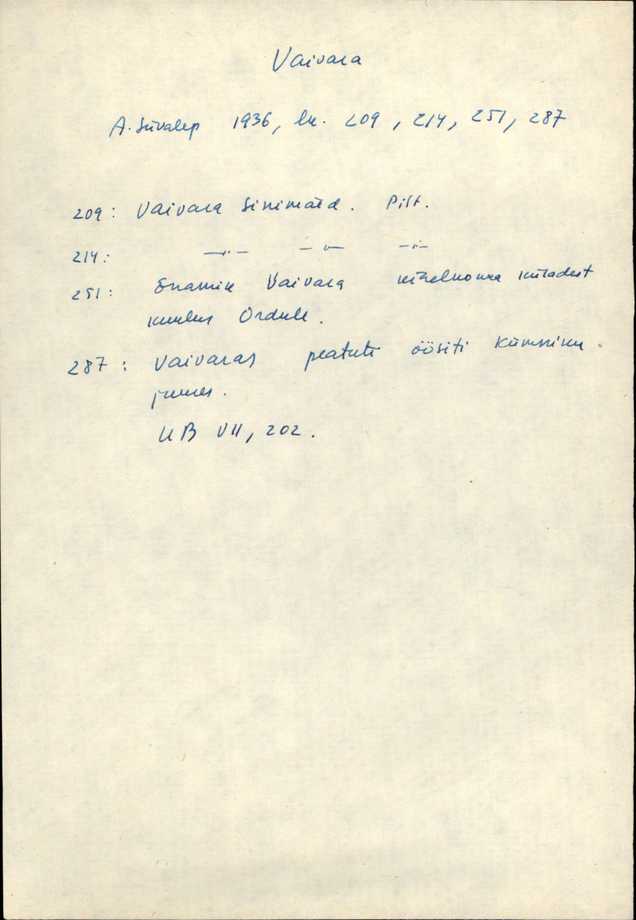 Vaivara
A. Süvalep 1936, lk. 209, 214, 251, 287
209: Vaivara Sinimäed. Pilt.
214: —"— —"— —"—
251: Enamik Vaivara kihelkonna küladest
kuulus Ordule.
287: Vaivaras peatuti öösiti kümniku
juures.
UB VII, 202.